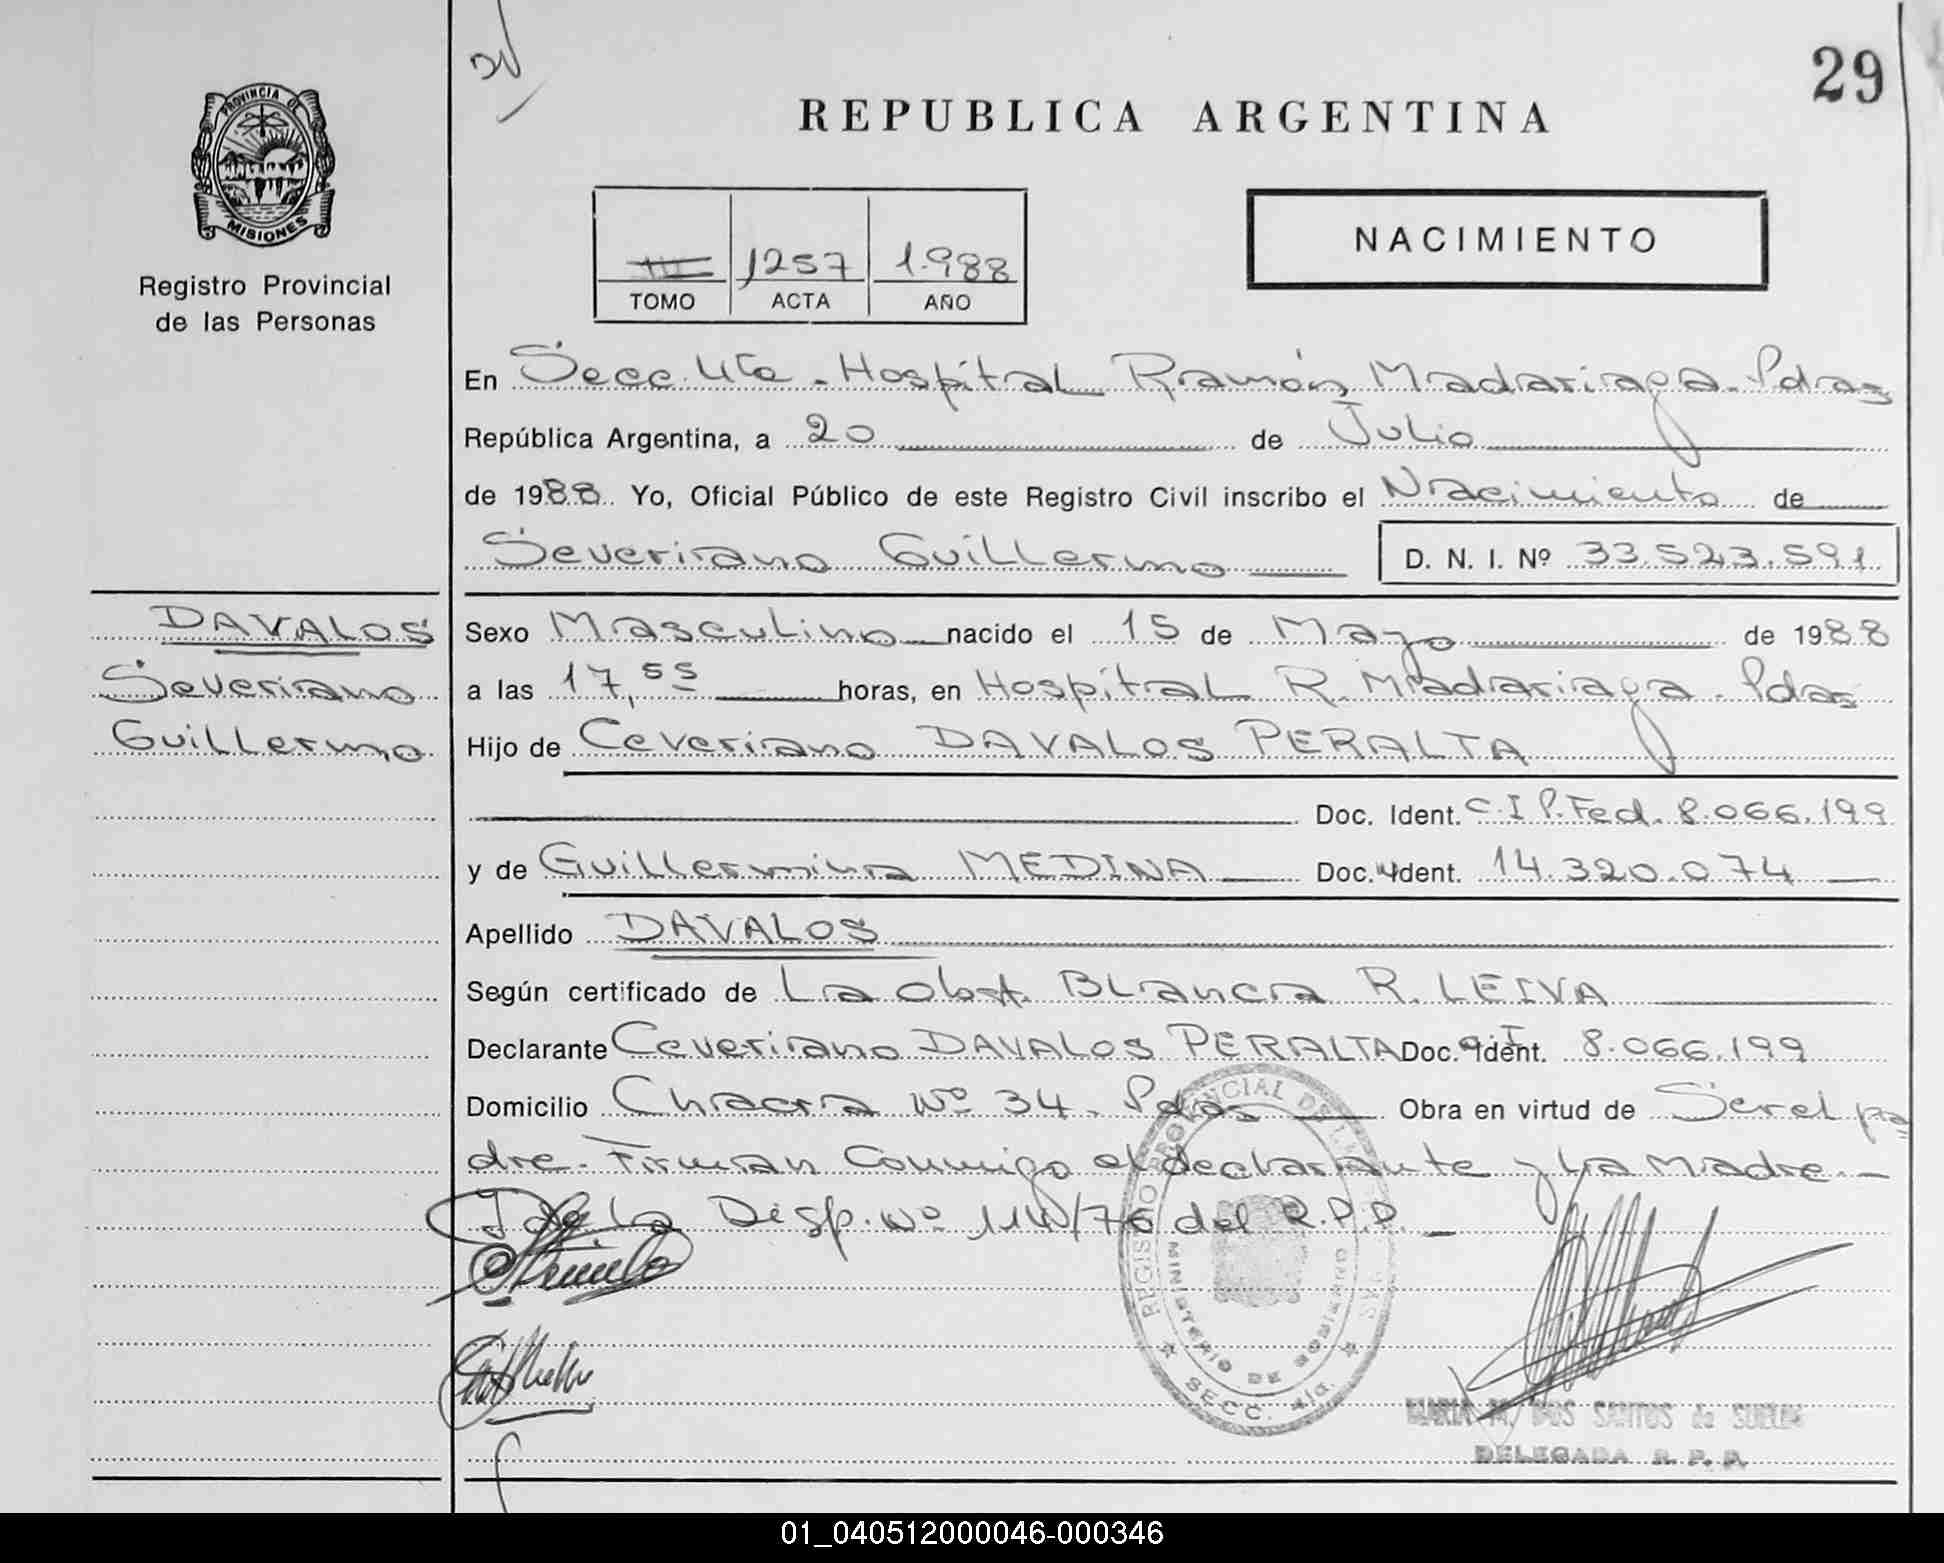 29
REPUBLICA ARGENTINA
PROVINCIA DE
MISIONES
Registro Provincial
de las Personas
NACIMIENTO
III 1257 1.988
TOMO ACTA AÑO
En Secc. 4ta. Hospital Ramón Madariaga. Pdas
República Argentina, a 20 de Julio
de 1988. Yo, Oficial Público de este Registro Civil inscribo el Nacimiento de
Severiano Guillermo D. N. I. Nº 33.523.591
DAVALOS
Severiano
Guillermo
Sexo Masculino nacido el 15 de Mayo de 1988
a las 17,55 horas, en Hospital R. Madariaga. Pdas
Hijo de Ceveriano DAVALOS PERALTA
Doc. Ident. C.I P.Fed. 8.066.199
y de Guillermina MEDINA Doc. Ident. 14.320.074
Apellido DAVALOS
Según certificado de La Obst. Blanca R. LEIVA
Declarante Ceveriano DAVALOS PERALTA Doc. Ident. 8.066.199
Domicilio Chacra Nº 34. Pdas Obra en virtud de Ser el pa
dre. Firman Conmigo el declarante y la Madre.
de la Disp. Nº 114/76 del R.P.P.
REGISTRO PROVINCIAL DE LAS PERSONAS
MINISTERIO DE GOBIERNO
SECC. 4ta.
MARIA M. DOS SANTOS de
DELEGADA R. P. P.
01_040512000046-000346